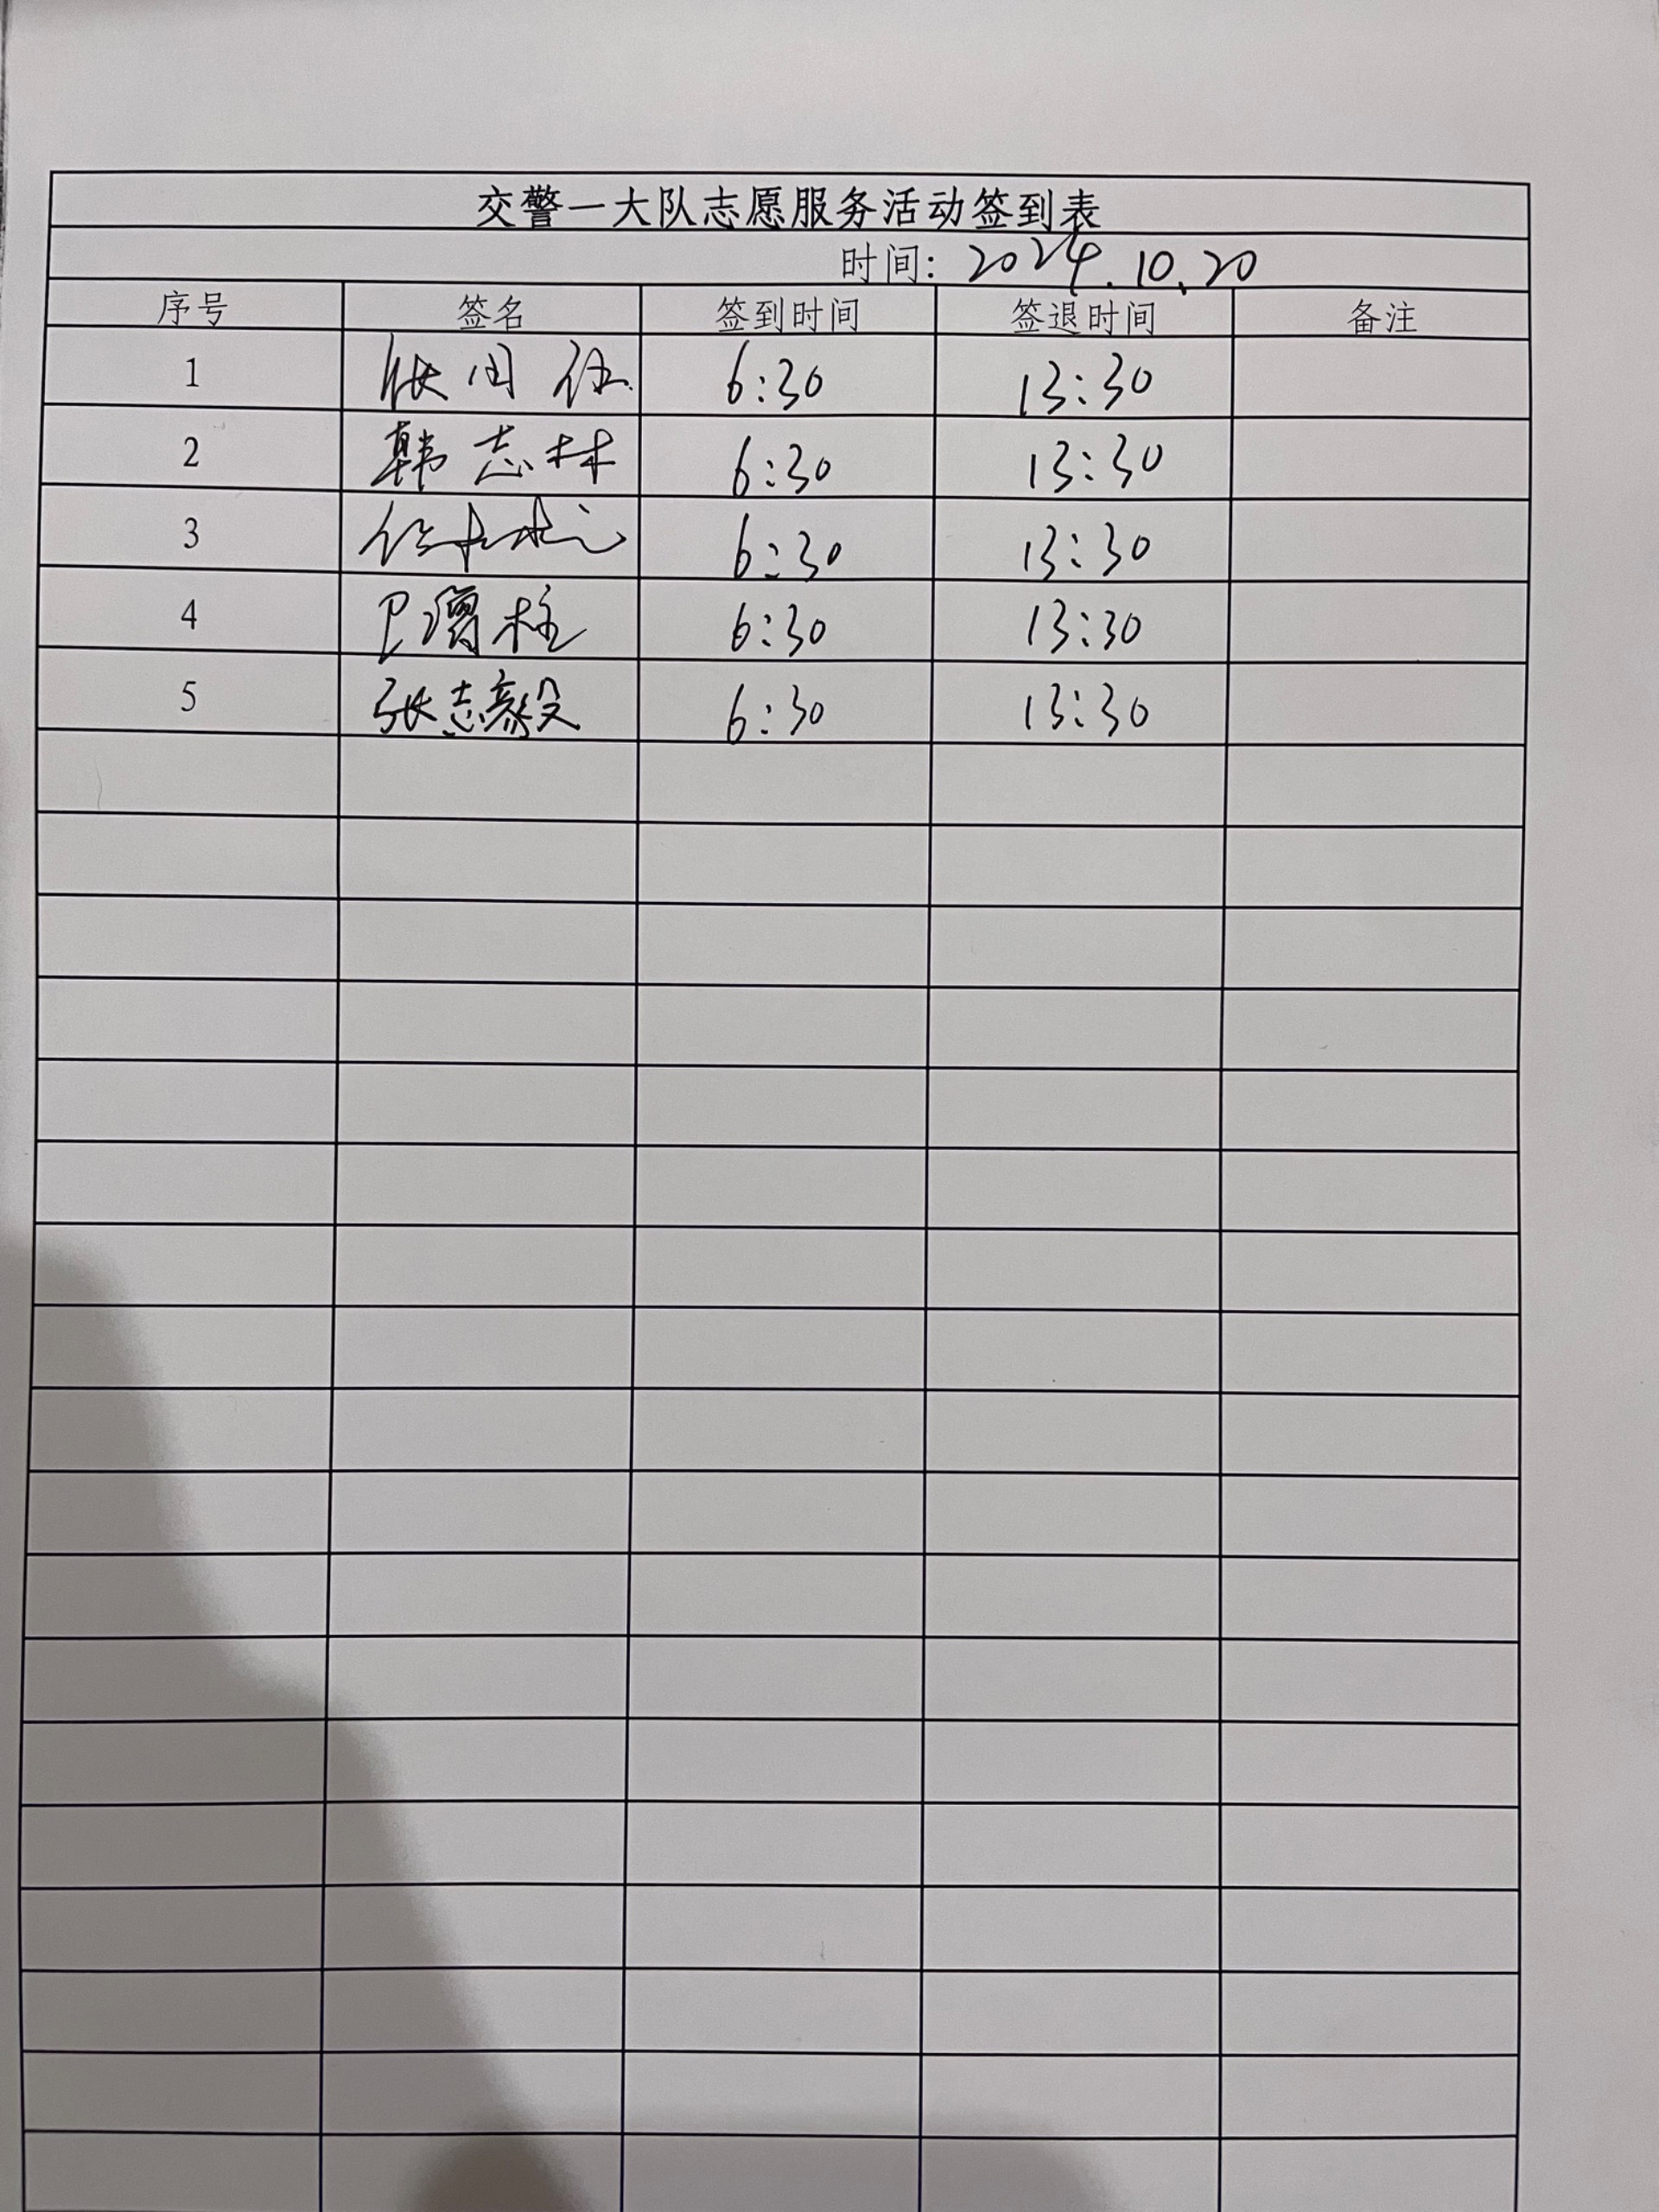 交警一大队志愿服务活动签到表
时间: 2024.10.20
序号 签名 签到时间 签退时间 备注
1 6:30 13:30
2 韩志林 6:30 13:30
3 6:30 13:30
4 6:30 13:30
5 张志毅 6:30 13:30